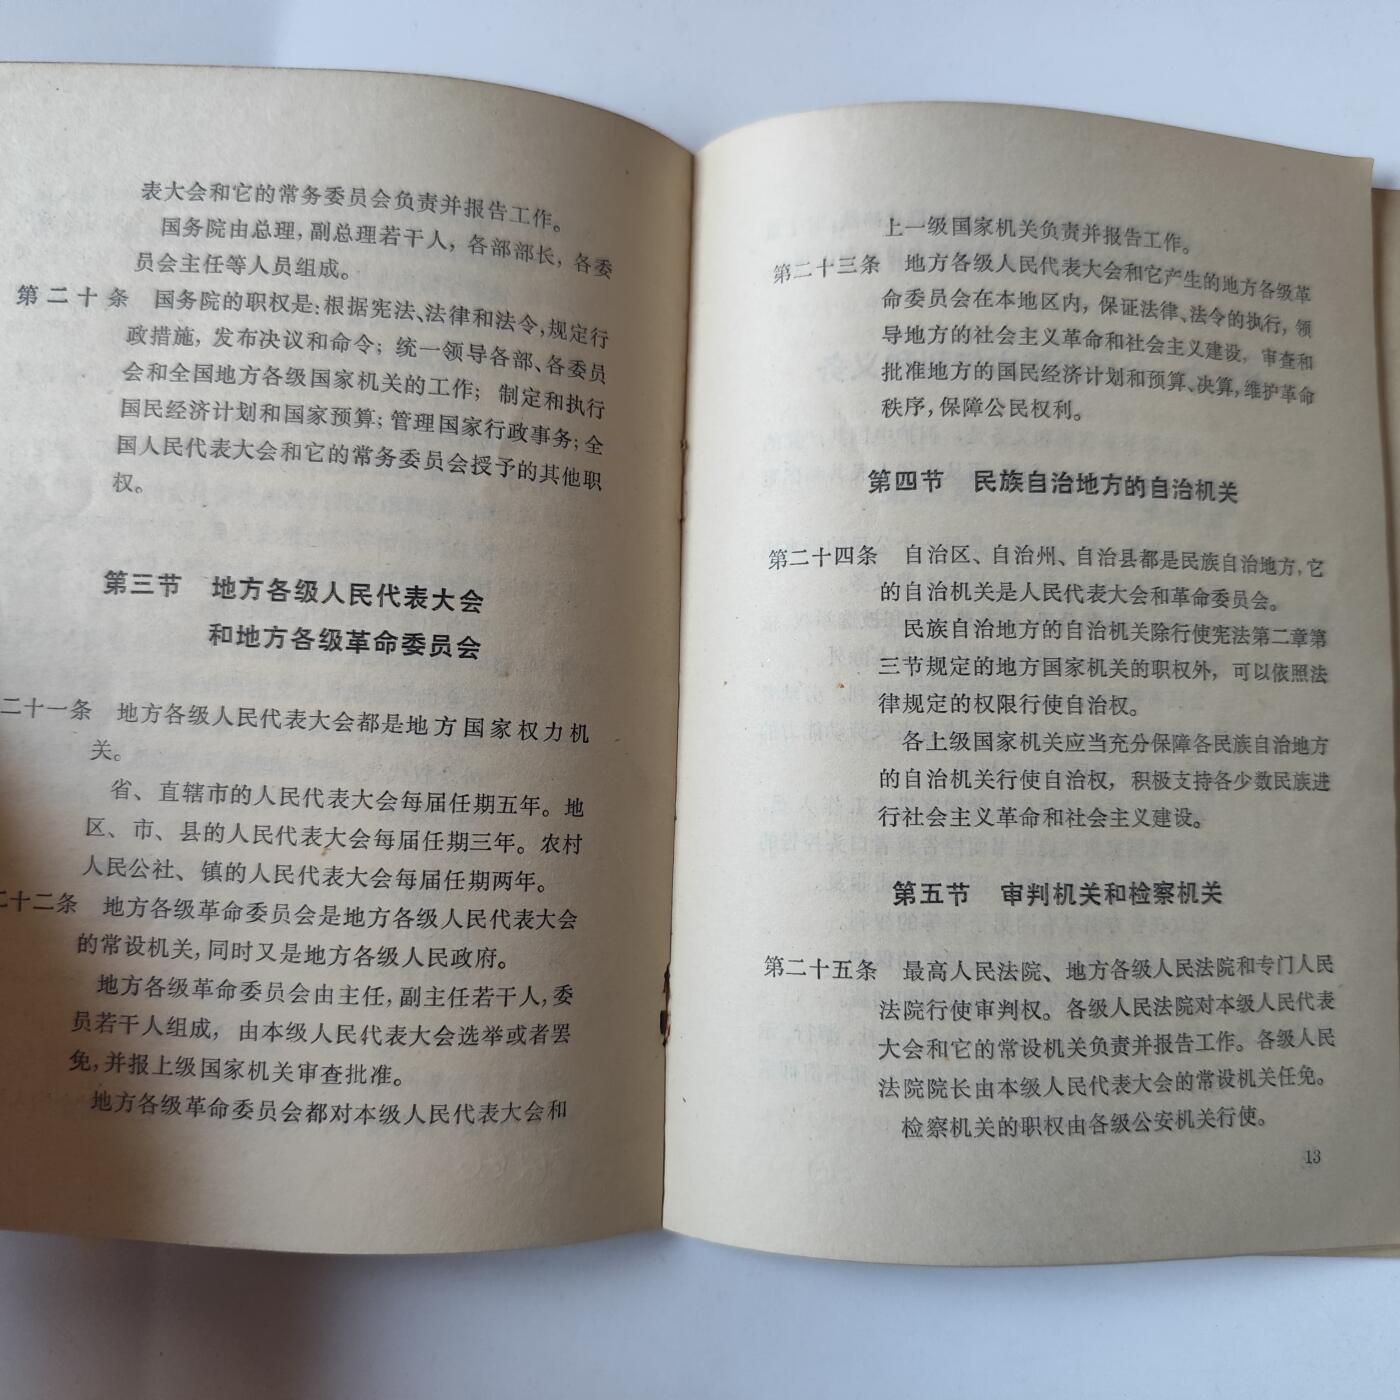 表大会和它的常务委员会负责并报告工作。
国务院由总理，副总理若干人，各部部长，各委
员会主任等人员组成。
第二十条 国务院的职权是：根据宪法、法律和法令，规定行
政措施，发布决议和命令；统一领导各部、各委员
会和全国地方各级国家机关的工作；制定和执行
国民经济计划和国家预算；管理国家行政事务；全
国人民代表大会和它的常务委员会授予的其他职
权。
第三节 地方各级人民代表大会
和地方各级革命委员会
二十一条 地方各级人民代表大会都是地方国家权力机
关。
省、直辖市的人民代表大会每届任期五年。地
区、市、县的人民代表大会每届任期三年。农村
人民公社、镇的人民代表大会每届任期两年。
二十二条 地方各级革命委员会是地方各级人民代表大会
的常设机关，同时又是地方各级人民政府。
地方各级革命委员会由主任，副主任若干人，委
员若干人组成，由本级人民代表大会选举或者罢
免，并报上级国家机关审查批准。
地方各级革命委员会都对本级人民代表大会和
上一级国家机关负责并报告工作。
第二十三条 地方各级人民代表大会和它产生的地方各级革
命委员会在本地区内，保证法律、法令的执行，领
导地方的社会主义革命和社会主义建设，审查和
批准地方的国民经济计划和预算、决算，维护革命
秩序，保障公民权利。
第四节 民族自治地方的自治机关
第二十四条 自治区、自治州、自治县都是民族自治地方，它
的自治机关是人民代表大会和革命委员会。
民族自治地方的自治机关除行使宪法第二章第
三节规定的地方国家机关的职权外，可以依照法
律规定的权限行使自治权。
各上级国家机关应当充分保障各民族自治地方
的自治机关行使自治权，积极支持各少数民族进
行社会主义革命和社会主义建设。
第五节 审判机关和检察机关
第二十五条 最高人民法院、地方各级人民法院和专门人民
法院行使审判权。各级人民法院对本级人民代表
大会和它的常设机关负责并报告工作。各级人民
法院院长由本级人民代表大会的常设机关任免。
检察机关的职权由各级公安机关行使。
13